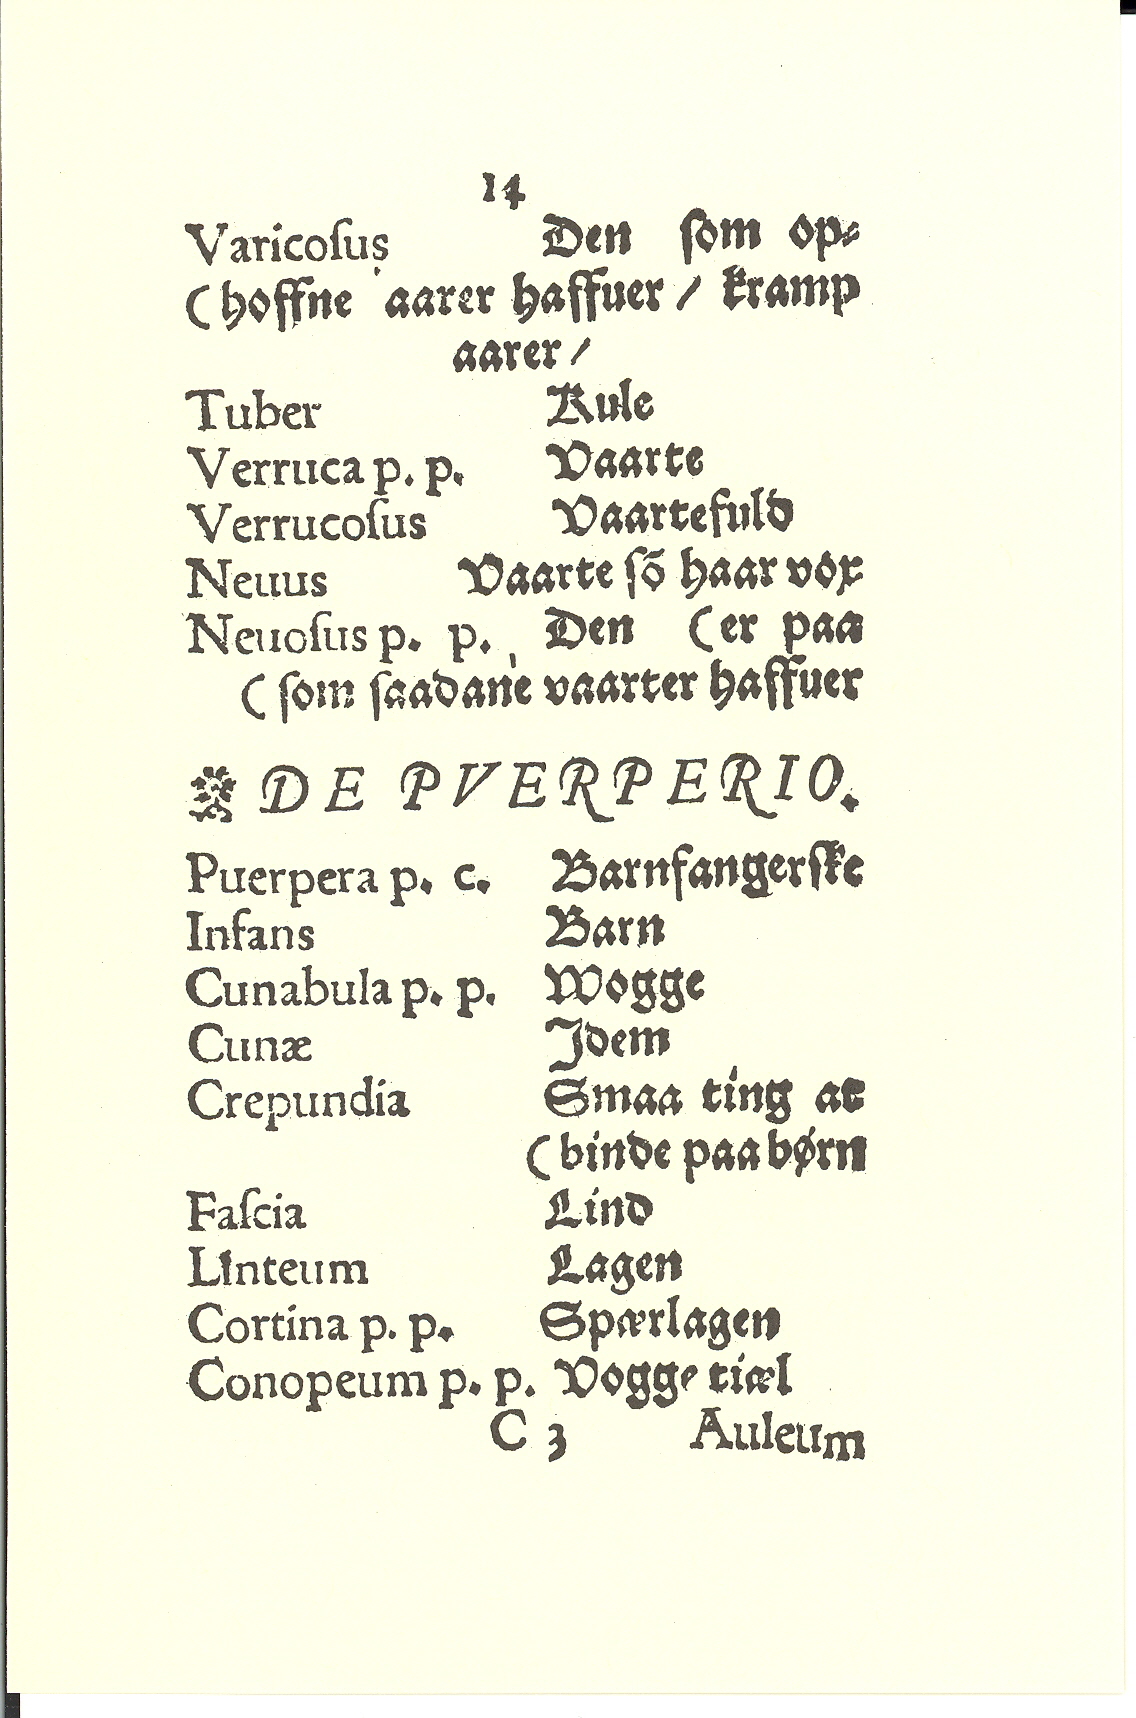 14
Varicoſus Den ſom op⸗
(hoffne aarer haffuer / kramp
aarer /
Tuber Kule
Verruca p. p. Vaarte
Verrucoſus Vaartefuld
Neuus Vaarte ſõ haar vox
Neuoſus p. p. Den (er paa
(ſom ſaadane vaarter haffuer
DE PVERPERIO.
Puerpera p. c. Barnfangerſke
Infans Barn
Cunabula p. p. Wogge
Cunæ Idem
Crepundia Smaa ting at
(binde paa børn
Faſcia Lind
Linteum Lagen
Cortina p. p. Spærlagen
Conopeum p. p. Vogge tiæl
C 3 Auleum